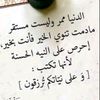 الدنيا ممر وليست مستقر
مادمت تنوي الخير فأنت بخير،
إحرص على النية الحسنة
لأنها تكتب :
[ و على نيّاتكم تُرزقون ]